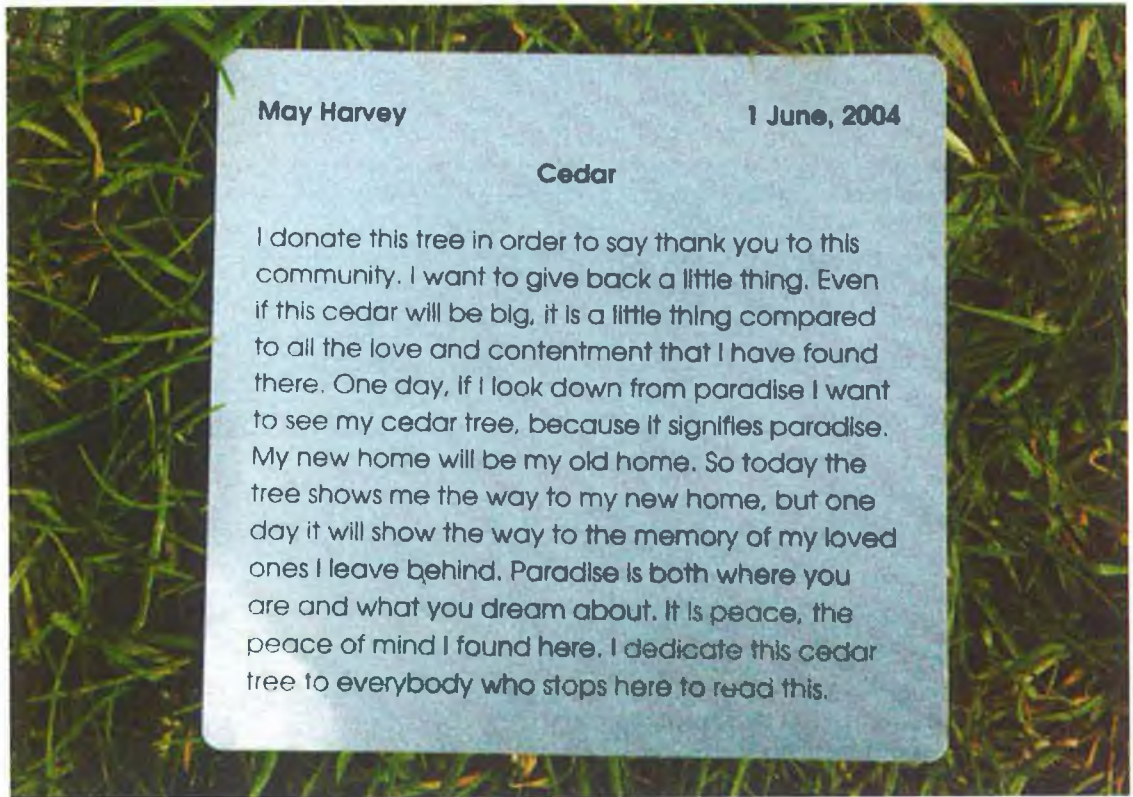 May Harvey 1 June, 2004
Cedar
I donate this tree in order to say thank you to this
community. I want to give back a little thing. Even
if this cedar will be big, it is a little thing compared
to all the love and contentment that I have found
there. One day, if I look down from paradise I want
to see my cedar tree, because it signifies paradise.
My new home will be my old home. So today the
tree shows me the way to my new home, but one
day it will show the way to the memory of my loved
ones I leave behind. Paradise is both where you
are and what you dream about. It is peace, the
peace of mind I found here. I dedicate this cedar
tree to everybody who stops here to read this.